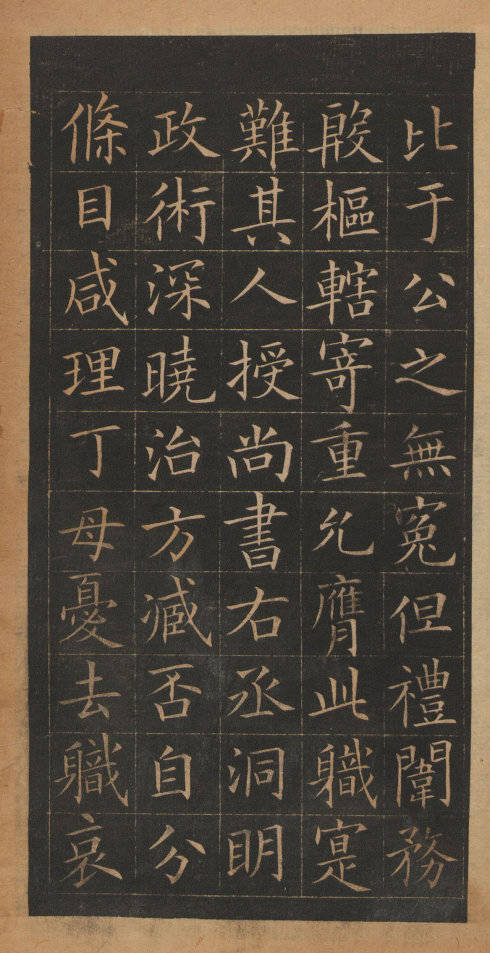 比于公之無寃但禮闈務
殷樞轄寄重允膺此職寔
難其人授尚書右丞洞明
政術深曉治方臧否自分
條目咸理丁母憂去職哀